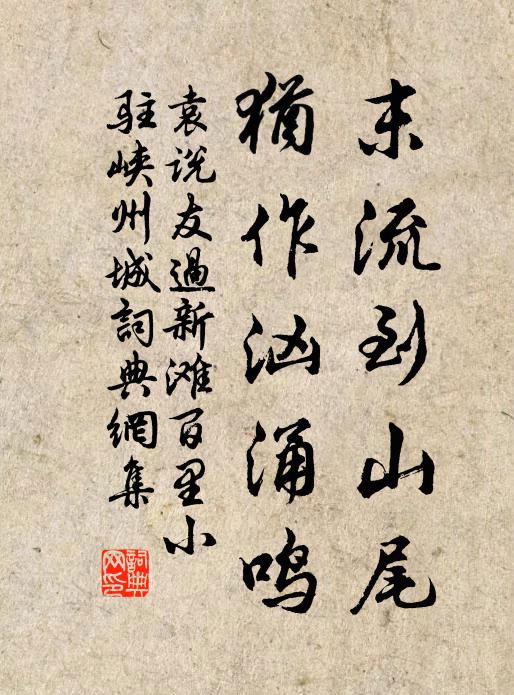 末流到山尾
猶作汹涌鸣
袁说友過新滩百里小
驻峡州城詞典網集
詞典
网印